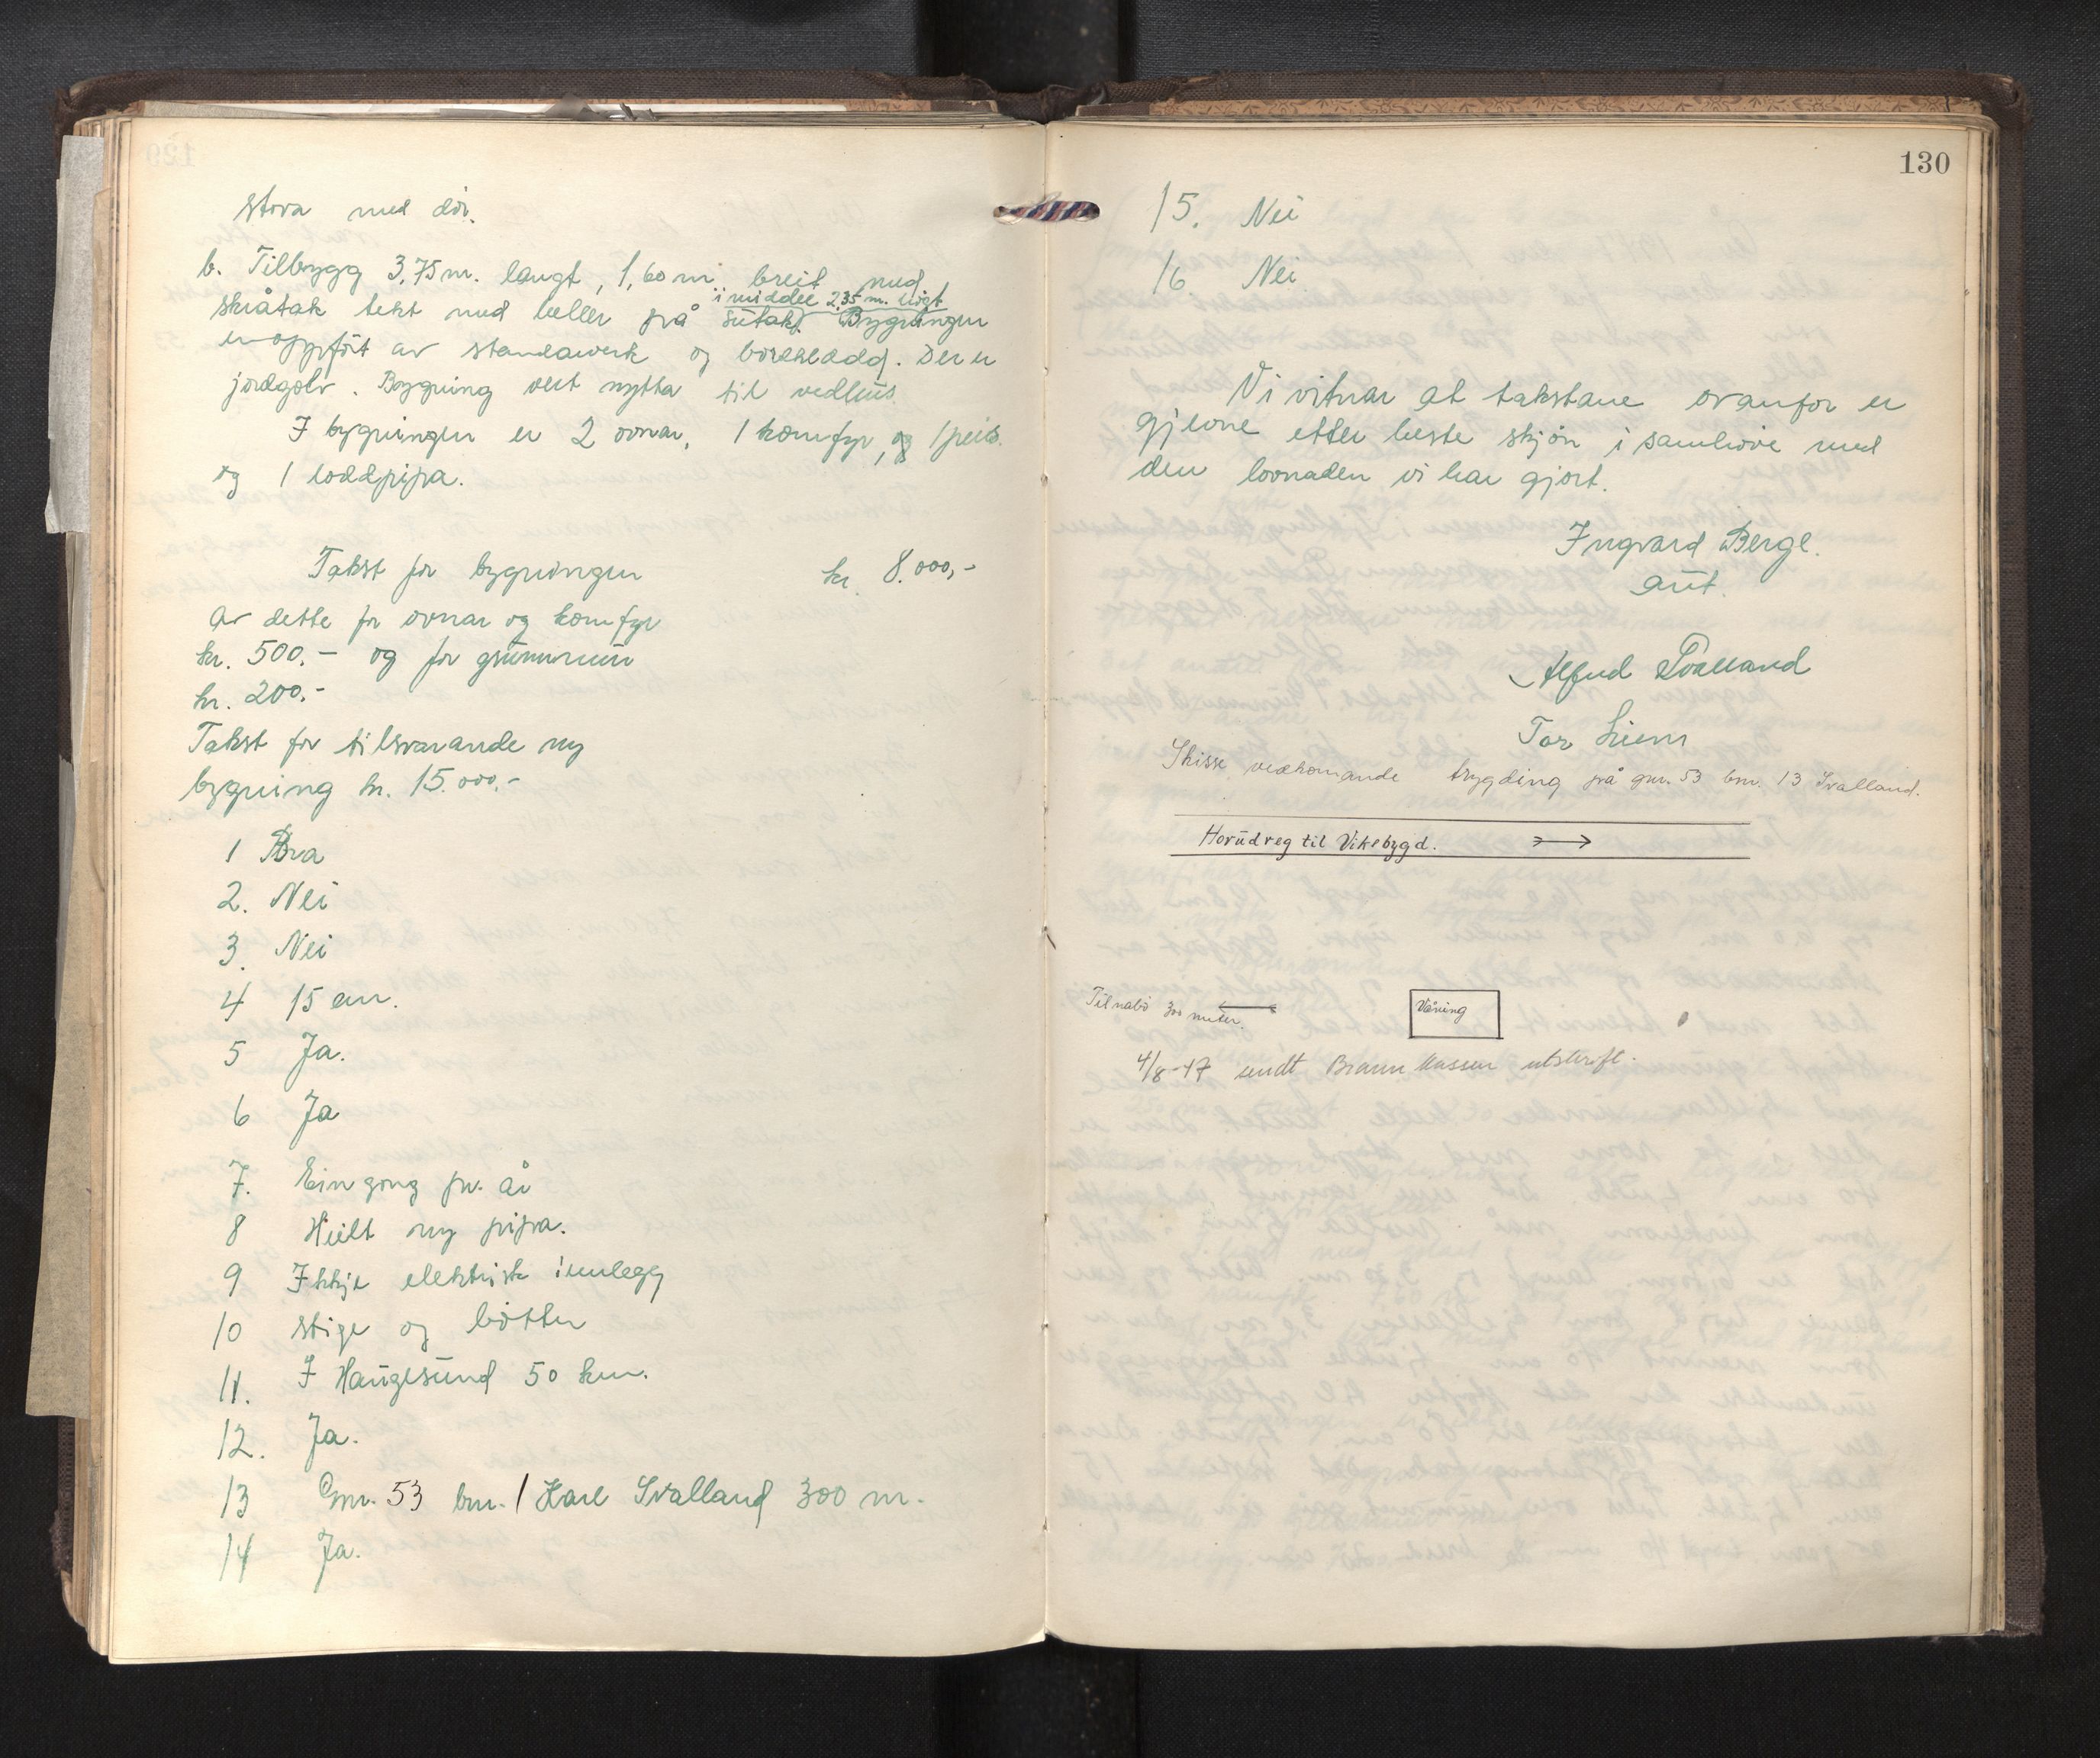 stova med dør.
b. Tilbygg 3,75 m. langt, 1,60 m breit med
i middel 2,35 m. högt
skråtak tekt med heller på sutak. Bygningen
er oppført av standawerk og bordkledd. Der er
jordgolv. Bygning vert nytta til vedhus.
I bygningen er 2 ovnar, 1 komfyr, og 1 peis.
og 1 loddpipa.
Takst for bygningen kr. 8.000,-
Av dette for ovnar og komfyr
kr. 500.- og for grunnmur
kr. 200.-
Takst for tilsvarande ny
bygning kr. 15.000,-
1 Bra
2. Nei
3. Nei
4 15 cm.
5 Ja.
6 Ja
7. Ein gong pr. år
8 Heilt ny pipa.
9 Ikkje elektrisk innlegg
10 Stige og bøtter
11. I Haugesund 50 km.
12. Ja.
13 Gnr. 53 bnr. 1 Karl Svalland 300 m.
14 Ja.
130
15. Nei
16. Nei
Vi vitnar at takstane ovanfor er
gjevne etter beste skjøn i samhøve med
den lovnaden vi har gjort.
Ingvard Berge.
aut.
Alfred
Tor Liem
Skisse vedkomande bygding på gnr. 53 bnr. 13 Svalland.
Hovudveg til Vikebygd.
Til nabo 300 meter.
Våning
4/8-47 sendt utskrift.